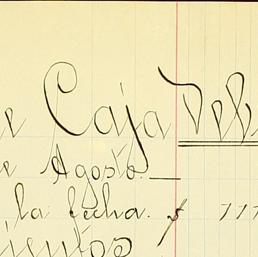 e Caja Deb
e Agosto.
la fecha. $ 777
ientos